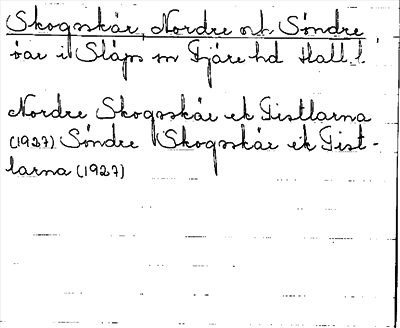 Skogsskär, Nordre och Söndre
öar i Släps sn Fjäre hd Hall. l.
Nordre Skogsskär ek Tistlarna
(1927) Söndre Skogsskär ek Tist-
larna (1927)